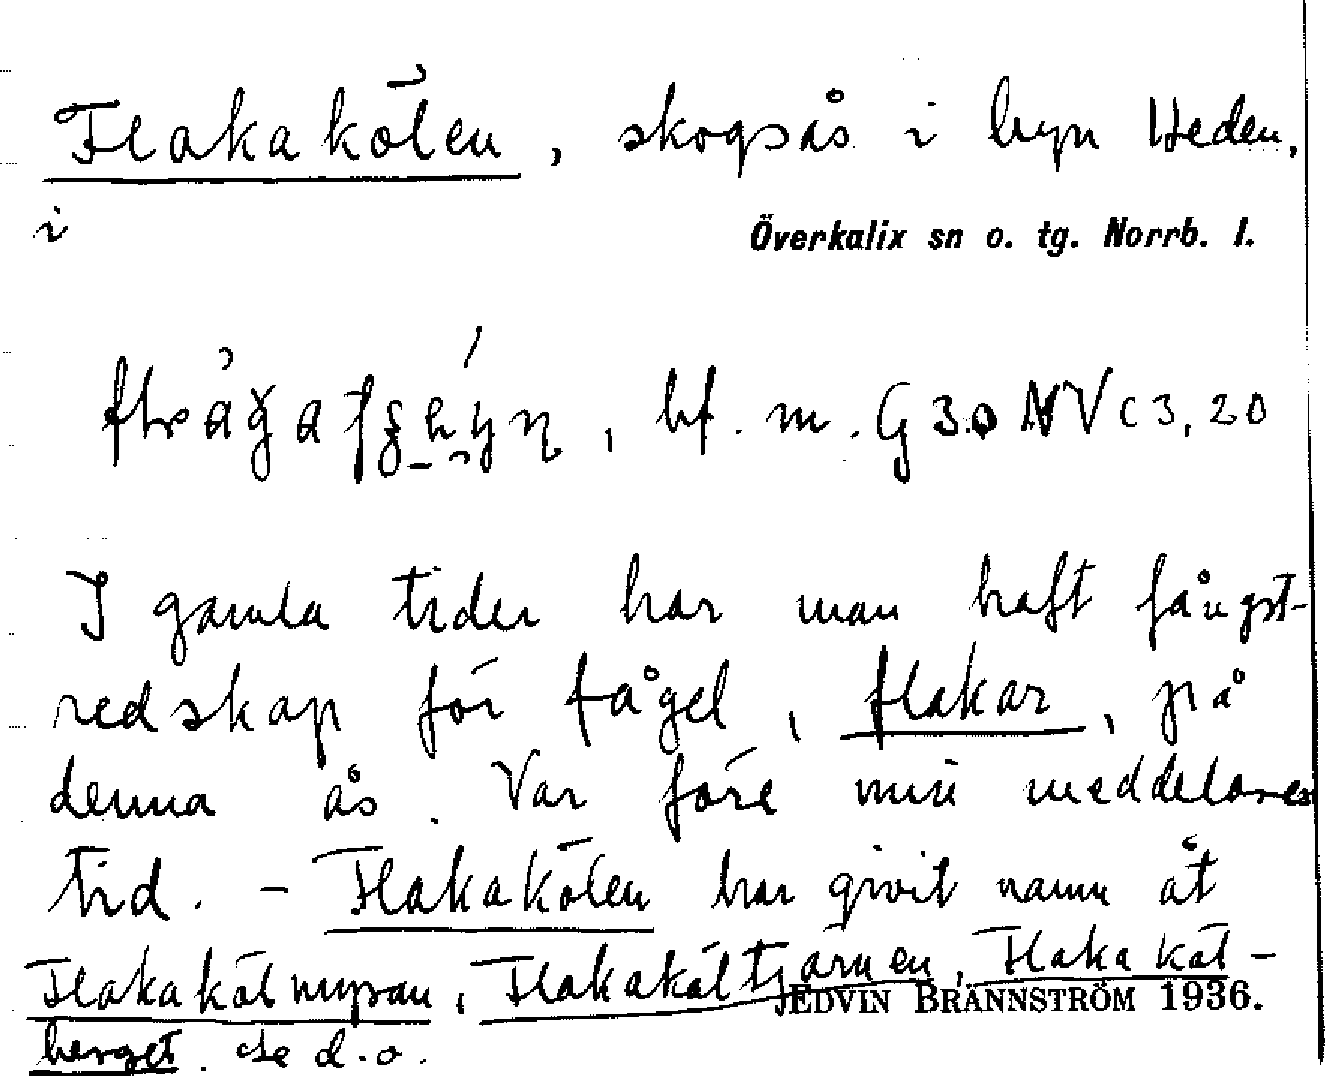 Flakakölen, skogsås i byn Heden,
i
Överkalix sn o. tg. Norrb. l.
, bf. m. G30 NV c 3, 20
I gamla tider har man haft fångst-
redskap för fågel, flakar, på
denna ås. Var före min meddelares
tid. - Flakakölen har givit namn åt
Flakakölmyran, Flakaköltjärnen, Flakaköl-
JEDVIN BRÄNNSTRÖM 1936.
berget. Se d.o.